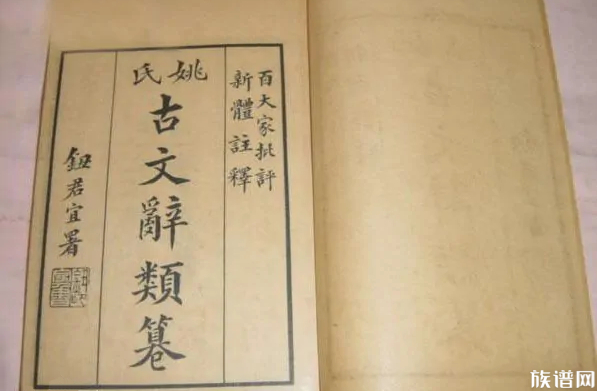 百大家批評
新體註釋
姚氏
古文辭類篹
鈕君宜署
族谱网